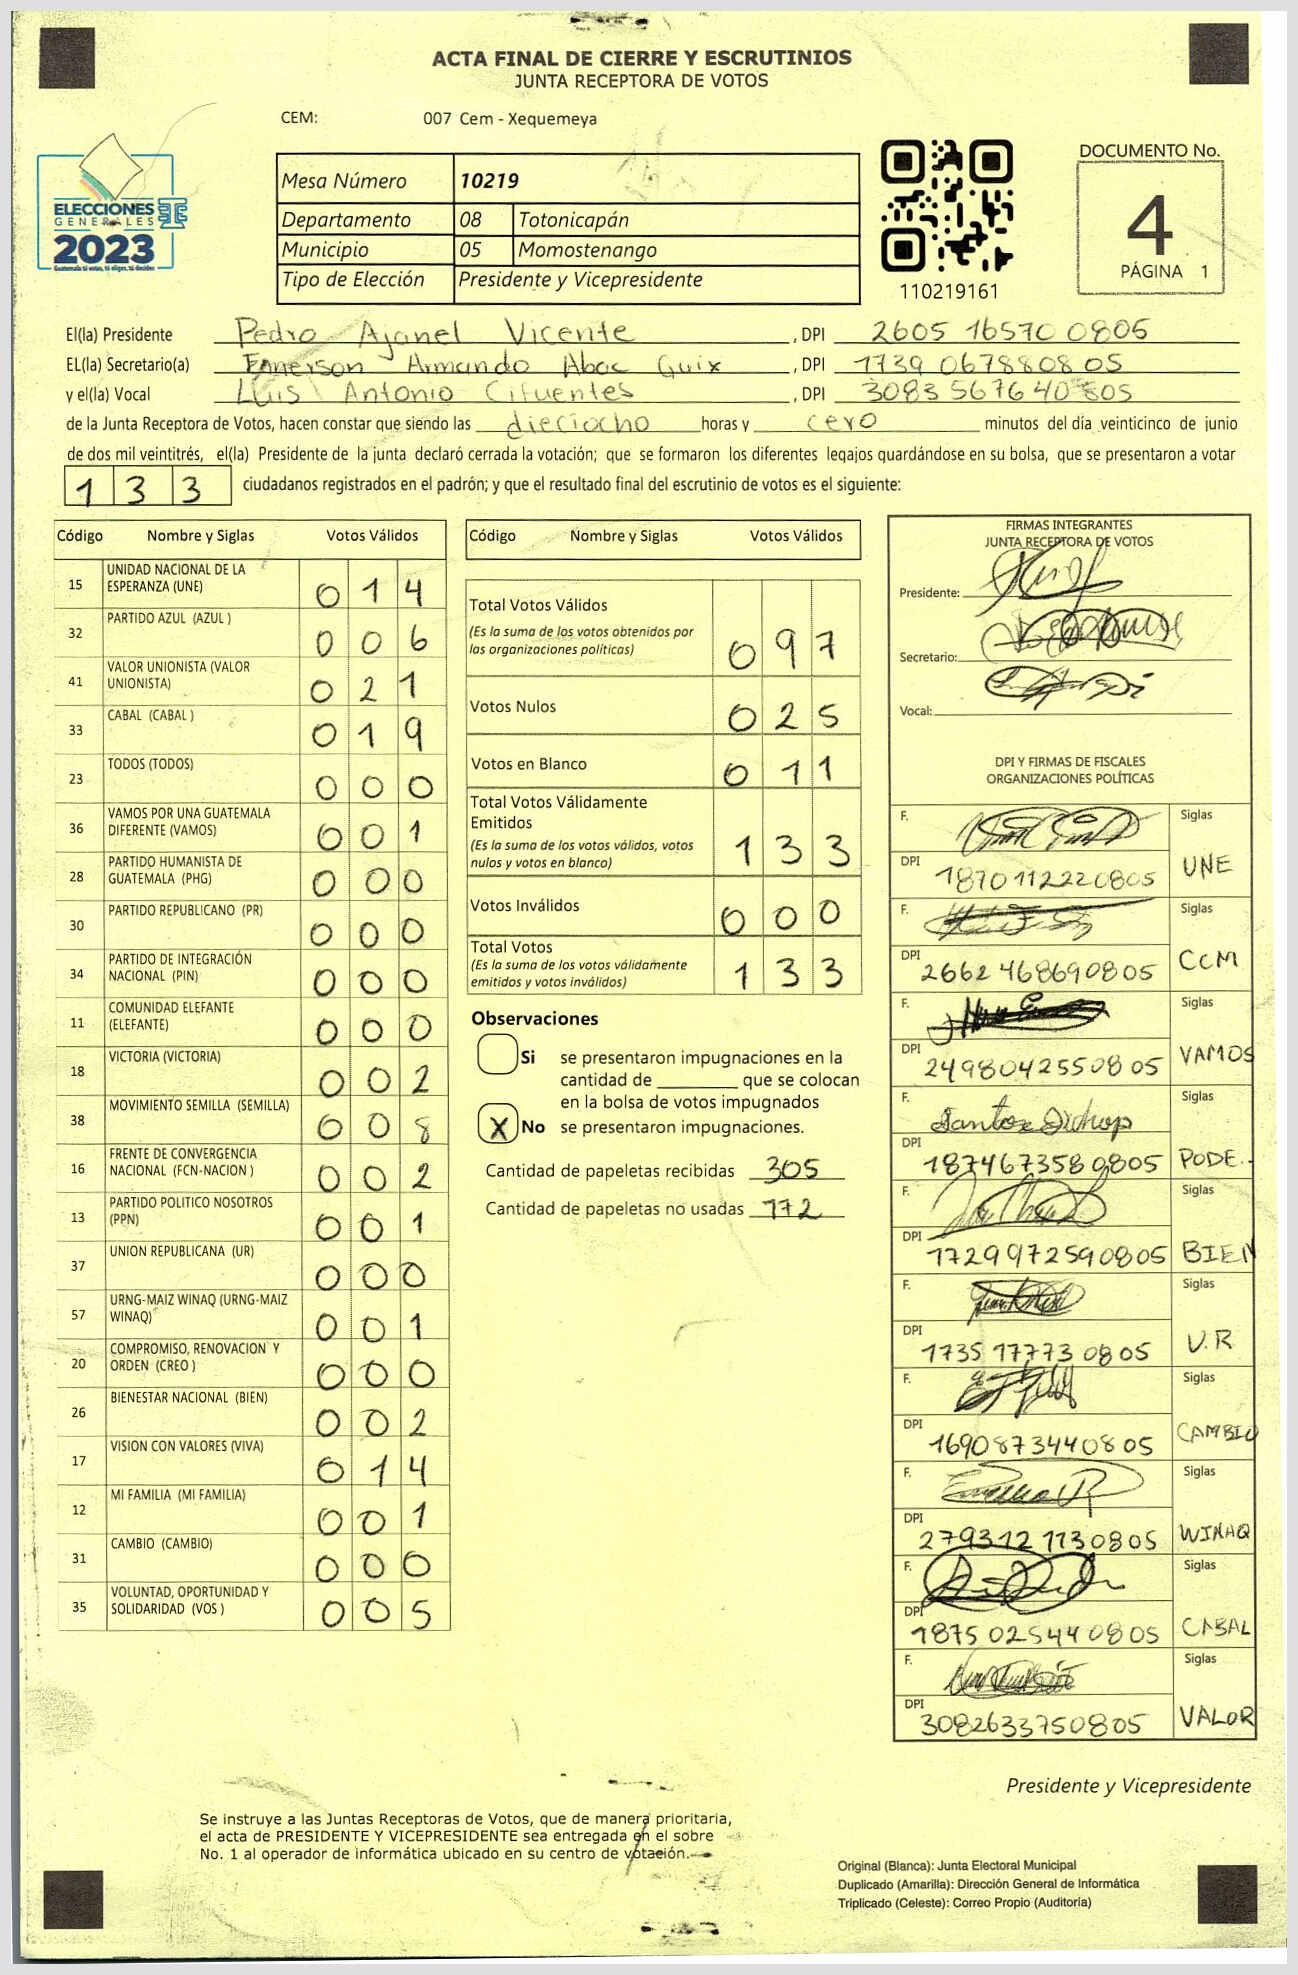 ACTA FINAL DE CIERRE Y ESCRUTINIOS
JUNTA RECEPTORA DE VOTOS
CEM: 007 Cem - Xequemeya
ELECCIONES
GENERALES
2023
Guatemala tú votas, tú eliges, tú decides
Mesa Número 10219
Departamento 08 Totonicapán
Municipio 05 Momostenango
Tipo de Elección Presidente y Vicepresidente
110219161
DOCUMENTO No.
4
PÁGINA 1
El(la) Presidente Pedro Ajanel Vicente , DPI 2605 16570 0805
EL(la) Secretario(a) Emerson Armando Abac Guix , DPI 1739 06788 0805
y el(la) Vocal Luis Antonio Cifuentes , DPI 3083 56764 0805
de la Junta Receptora de Votos, hacen constar que siendo las dieciocho horas y cero minutos del día veinticinco de junio
de dos mil veintitrés, el(la) Presidente de la junta declaró cerrada la votación; que se formaron los diferentes legajos guardándose en su bolsa, que se presentaron a votar
133 ciudadanos registrados en el padrón; y que el resultado final del escrutinio de votos es el siguiente:
Código Nombre y Siglas Votos Válidos
15 UNIDAD NACIONAL DE LA ESPERANZA (UNE) 014
32 PARTIDO AZUL (AZUL ) 006
41 VALOR UNIONISTA (VALOR UNIONISTA) 021
33 CABAL (CABAL ) 019
23 TODOS (TODOS) 000
36 VAMOS POR UNA GUATEMALA DIFERENTE (VAMOS) 001
28 PARTIDO HUMANISTA DE GUATEMALA (PHG) 000
30 PARTIDO REPUBLICANO (PR) 000
34 PARTIDO DE INTEGRACIÓN NACIONAL (PIN) 000
11 COMUNIDAD ELEFANTE (ELEFANTE) 000
18 VICTORIA (VICTORIA) 002
38 MOVIMIENTO SEMILLA (SEMILLA) 008
16 FRENTE DE CONVERGENCIA NACIONAL (FCN-NACION ) 002
13 PARTIDO POLITICO NOSOTROS (PPN) 001
37 UNION REPUBLICANA (UR) 000
57 URNG-MAIZ WINAQ (URNG-MAIZ WINAQ) 001
20 COMPROMISO, RENOVACION Y ORDEN (CREO ) 000
26 BIENESTAR NACIONAL (BIEN) 002
17 VISION CON VALORES (VIVA) 014
12 MI FAMILIA (MI FAMILIA) 001
31 CAMBIO (CAMBIO) 000
35 VOLUNTAD, OPORTUNIDAD Y SOLIDARIDAD (VOS ) 005
Código Nombre y Siglas Votos Válidos
Total Votos Válidos 097
(Es la suma de los votos obtenidos por
las organizaciones políticas)
Votos Nulos 025
Votos en Blanco 011
Total Votos Válidamente
Emitidos 133
(Es la suma de los votos válidos, votos
nulos y votos en blanco)
Votos Inválidos 000
Total Votos 133
(Es la suma de los votos válidamente
emitidos y votos inválidos)
Observaciones
Si se presentaron impugnaciones en la
cantidad de ________ que se colocan
en la bolsa de votos impugnados
X No se presentaron impugnaciones.
Cantidad de papeletas recibidas 305
Cantidad de papeletas no usadas 172
FIRMAS INTEGRANTES
JUNTA RECEPTORA DE VOTOS
Presidente:
Secretario:
Vocal:
DPI Y FIRMAS DE FISCALES
ORGANIZACIONES POLÍTICAS
F. Siglas
DPI 1870112220805 UNE
F. Siglas
DPI 2662468690805 CCM
F. Siglas
DPI 2498042550805 VAMOS
F. Santos Siglas
DPI 1874673580805 PODE..
F. Siglas
DPI 1729972590805 BIEN
F. Siglas
DPI 1735 17773 0805 U.R
F. Siglas
DPI 1690873440805 CAMBIO
F. Siglas
DPI 279312 1130805 WINAQ
F. Siglas
DPI 1875 02544 0805 CABAL
F. Siglas
DPI 3082633750805 VALOR
Presidente y Vicepresidente
Se instruye a las Juntas Receptoras de Votos, que de manera prioritaria,
el acta de PRESIDENTE Y VICEPRESIDENTE sea entregada en el sobre
No. 1 al operador de informática ubicado en su centro de votación.
Original (Blanca): Junta Electoral Municipal
Duplicado (Amarilla): Dirección General de Informática
Triplicado (Celeste): Correo Propio (Auditoría)